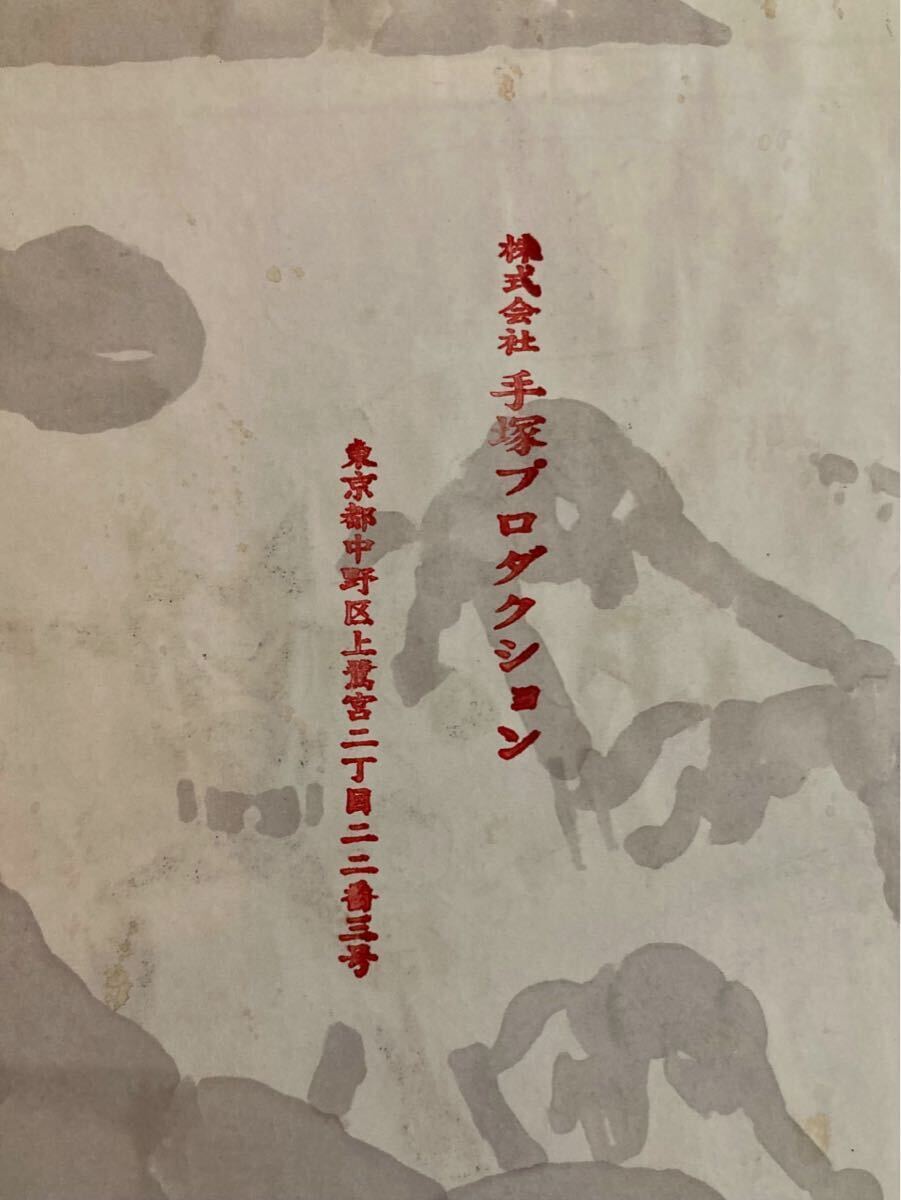 株式会社 手塚プロダクション
東京都中野区上鷺宮二丁目二二番三号